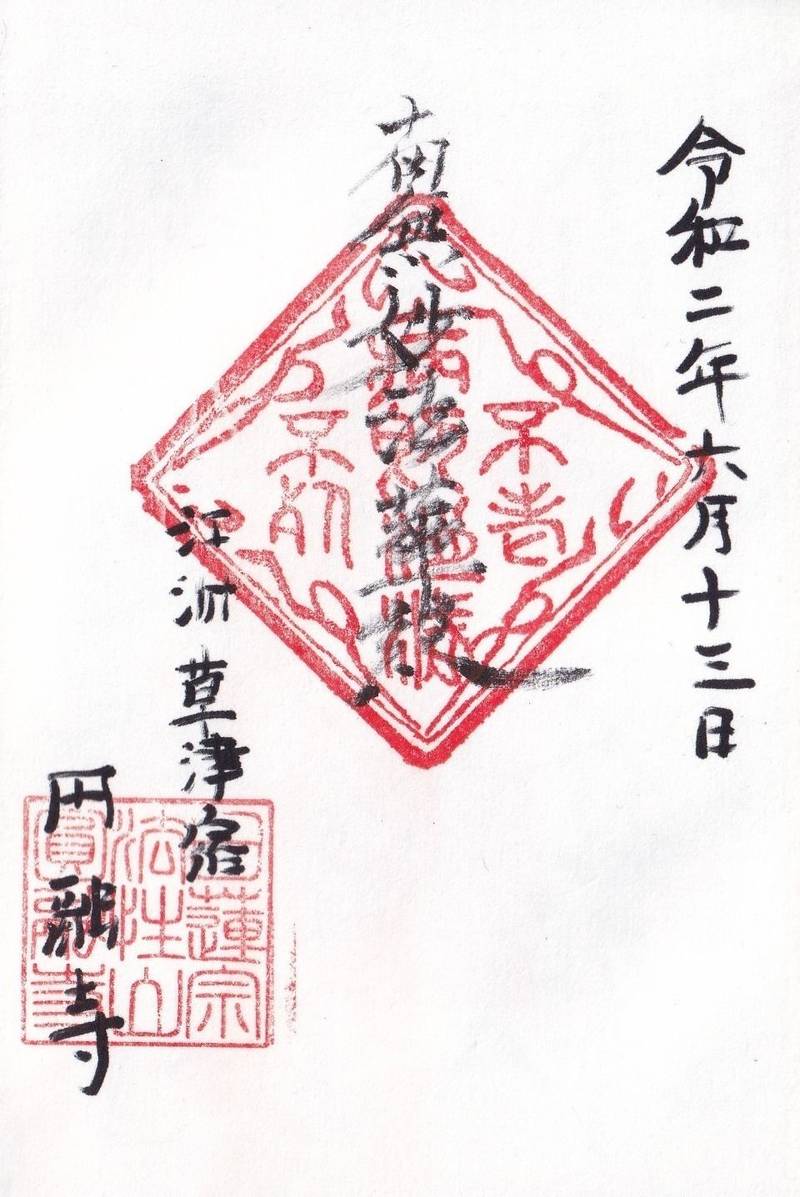 令和二年六月十三日
南無妙法蓮華経
病即消滅
不老
不死
江州 草津宿
円融寺
日蓮宗
法性山
圓融寺